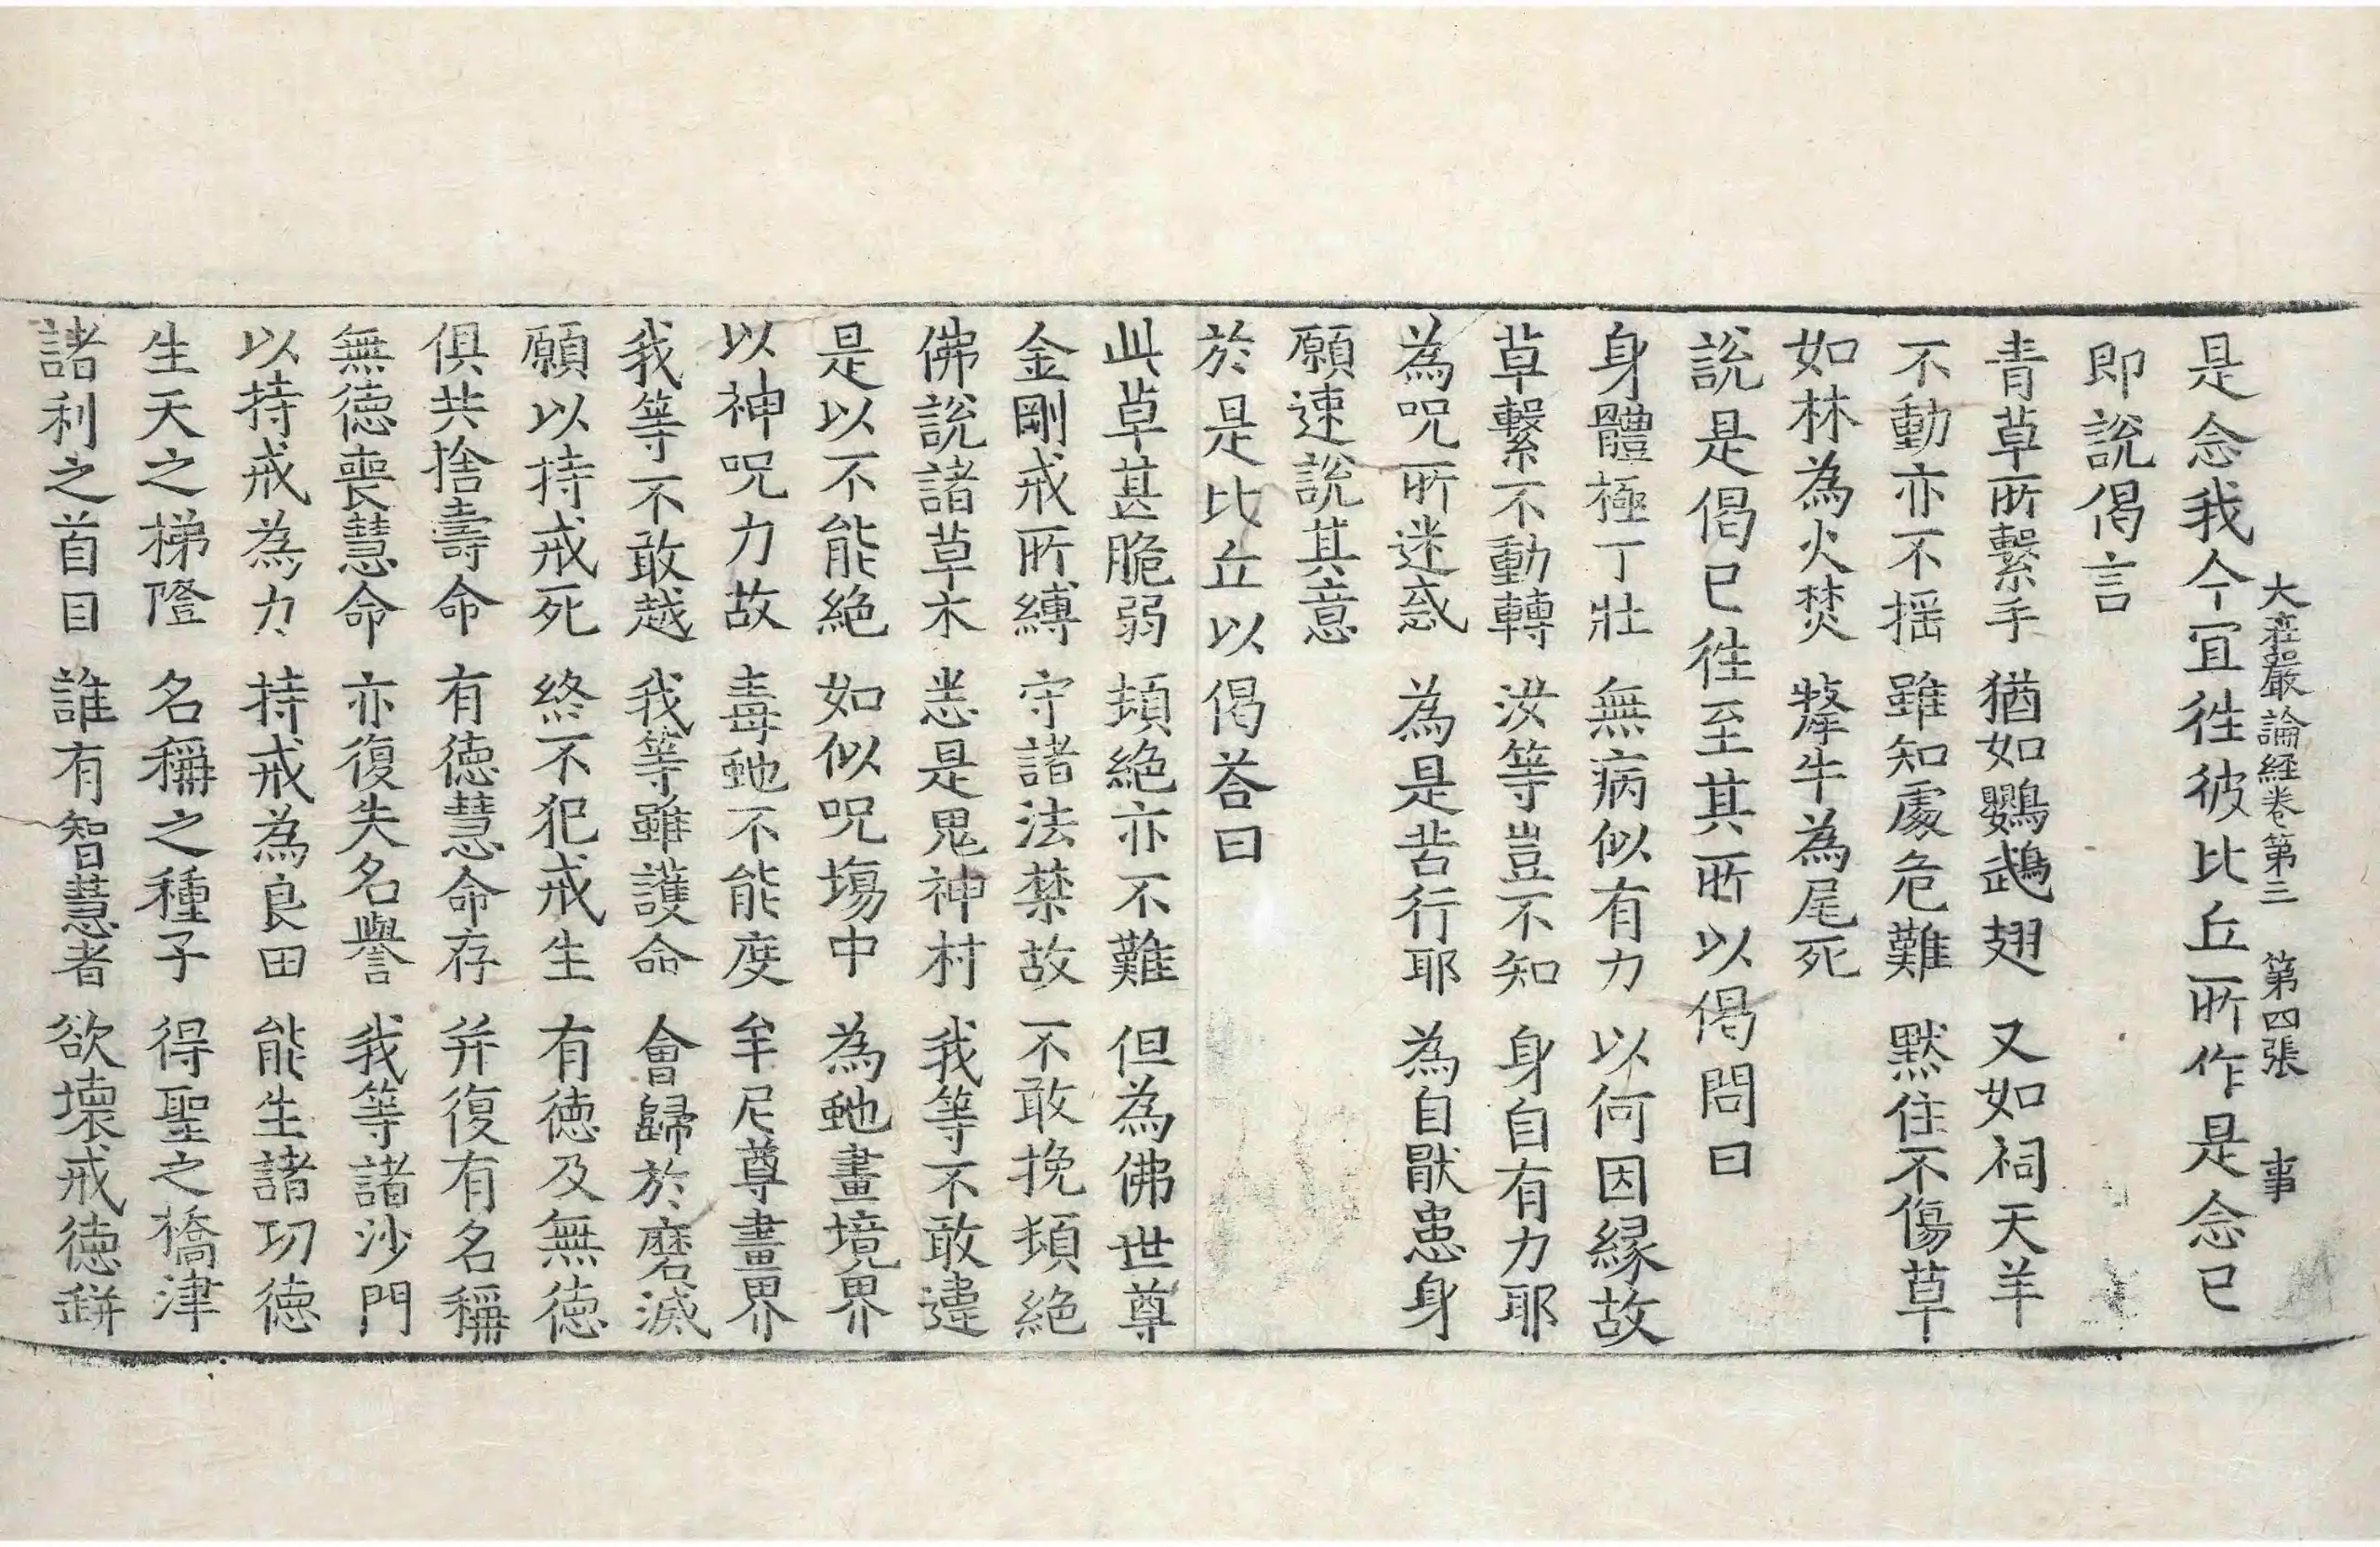 大莊嚴論經卷第三　第四張　事
是念我今宜徃彼比丘所作是念已
即說偈言
青草所繫手　猶如鸚鵡翅　又如祠天羊
不動亦不揺　雖知處危難　默住不傷草
如林為火焚　犛牛為尾死
說是偈已徃至其所以偈問曰
身體極丁壯　無病似有力　以何因縁故
草繫不動轉　汝等豈不知　身自有力耶
為呪所迷惑　為是苦行耶　為自猒患身
願速說其意
於是比丘以偈荅曰
此草甚脆弱　頓絕亦不難　但為佛世尊
金剛戒所縛　守諸法禁故　不敢挽頓絕
佛說諸草木　悉是鬼神村　我等不敢違
是以不能絕　如似呪塲中　為虵畫境界
以神呪力故　毒虵不能度　牟尼尊畫界
我等不敢越　我等雖護命　會歸於磨滅
願以持戒死　終不犯戒生　有徳及無徳
俱共捨壽命　有徳慧命存　并復有名稱
無徳喪慧命　亦復失名譽　我等諸沙門
以持戒為力　持戒為良田　能生諸功徳
生天之梯隥　名稱之種子　得聖之橋津
諸利之首目　誰有智慧者　欲壞戒徳缾